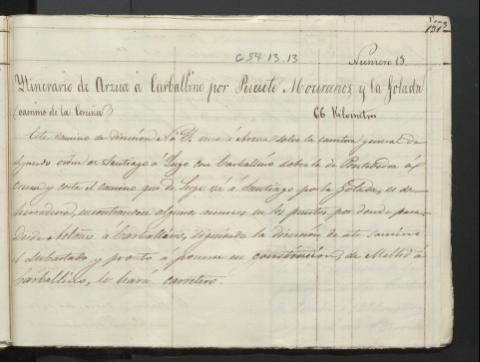 131
G 54.13.13
Numero 13
Itinerario de Arzua á Carballino por Puente Mouranoz y la Golada
(camino de la Coruña) 66 Kilómetros
Este camino de direccion N. á S. une á Arzua sobre la carretera general de
segundo orden de Santiago á Lugo con Carballino sobre la de Pontevedra á
Orense y corta el camino que de Lugo vá á Santiago por la Golada, es de
herradura, encontrandose algunos en los puntos por donde pasa.
Desde á Carballino, siguiendo la direccion de este camino
el estudiado y pronto á ponerse en construccion, de Mellid á
Carballino, lo hará carretero.